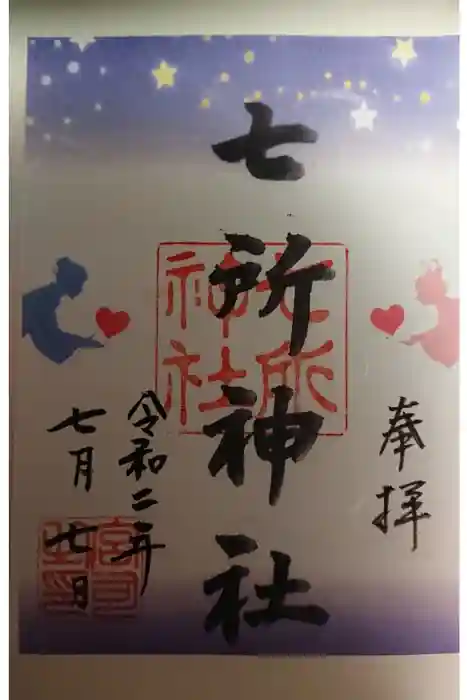 奉拝
七所神社
七所
神社
令和二年
七月七日
宮司
之印